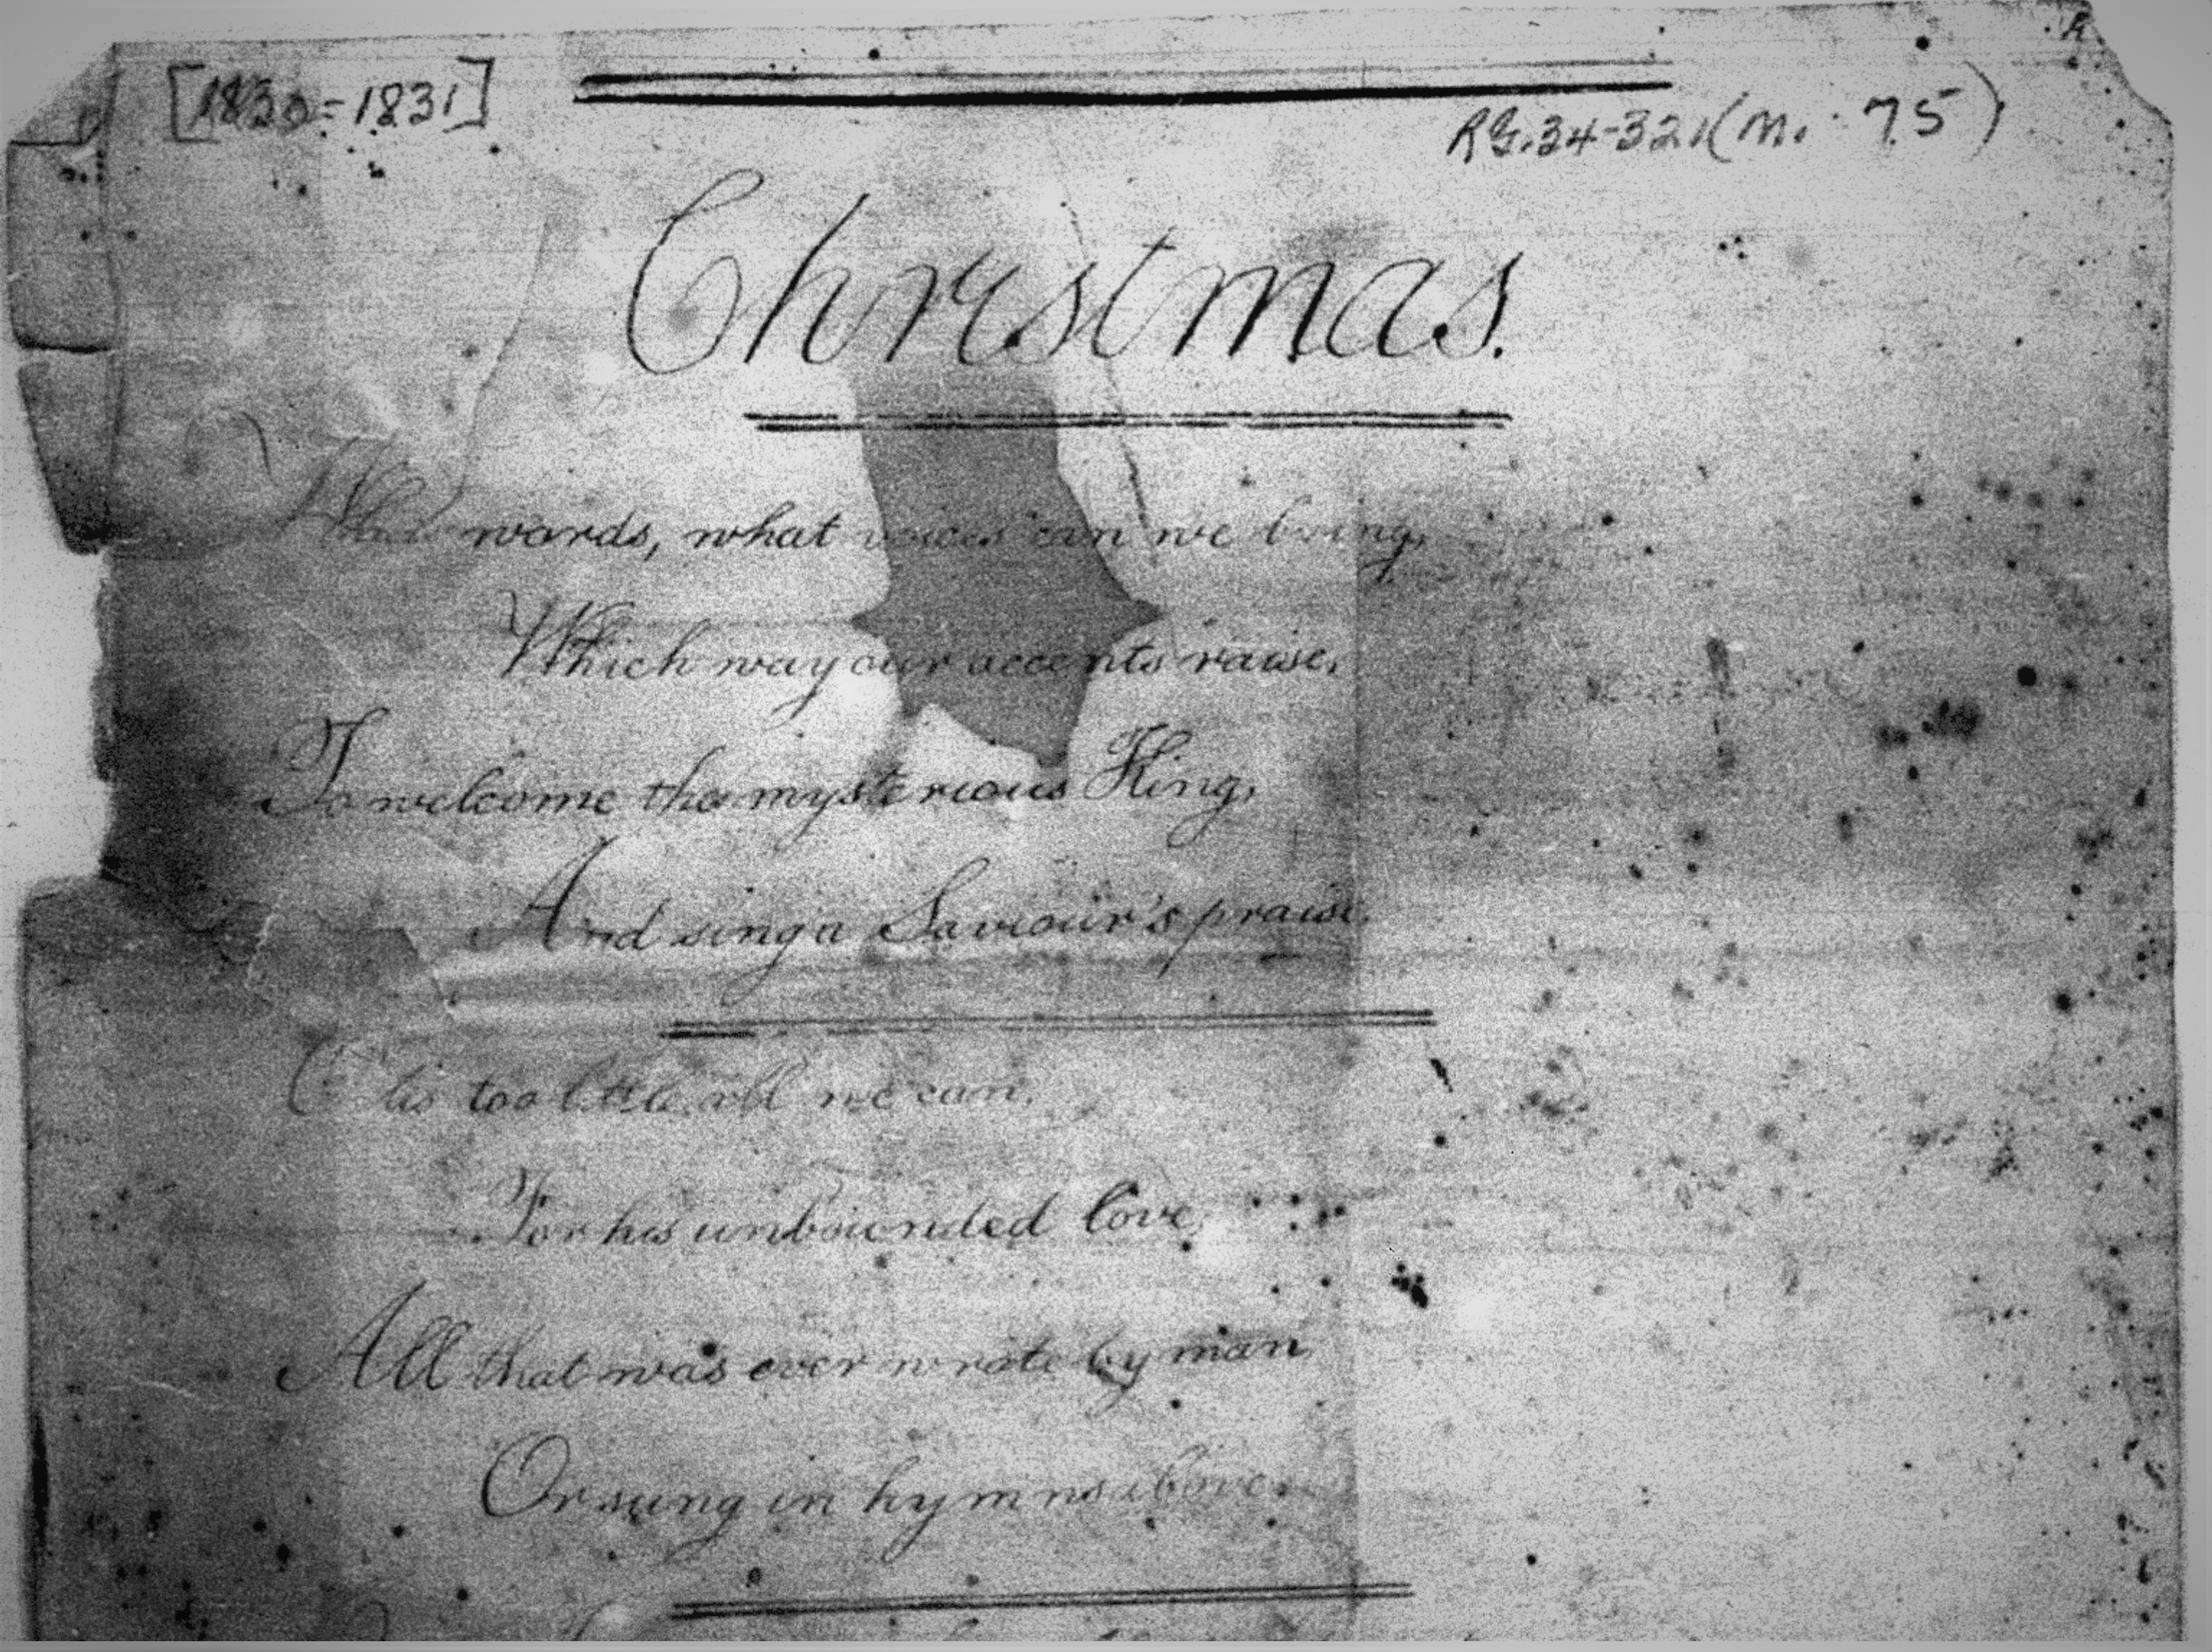 [1830-1831]
RG.34-321(M. 75)
Christmas.
What words, what voices can we bring,
Which way our accents raise,
To welcome the mysterious King,
And sing a Saviour's praise.
O 'tis too little all we can,
For his unbounded love,
All that was ever wrote by man,
Or sung in hymns above.